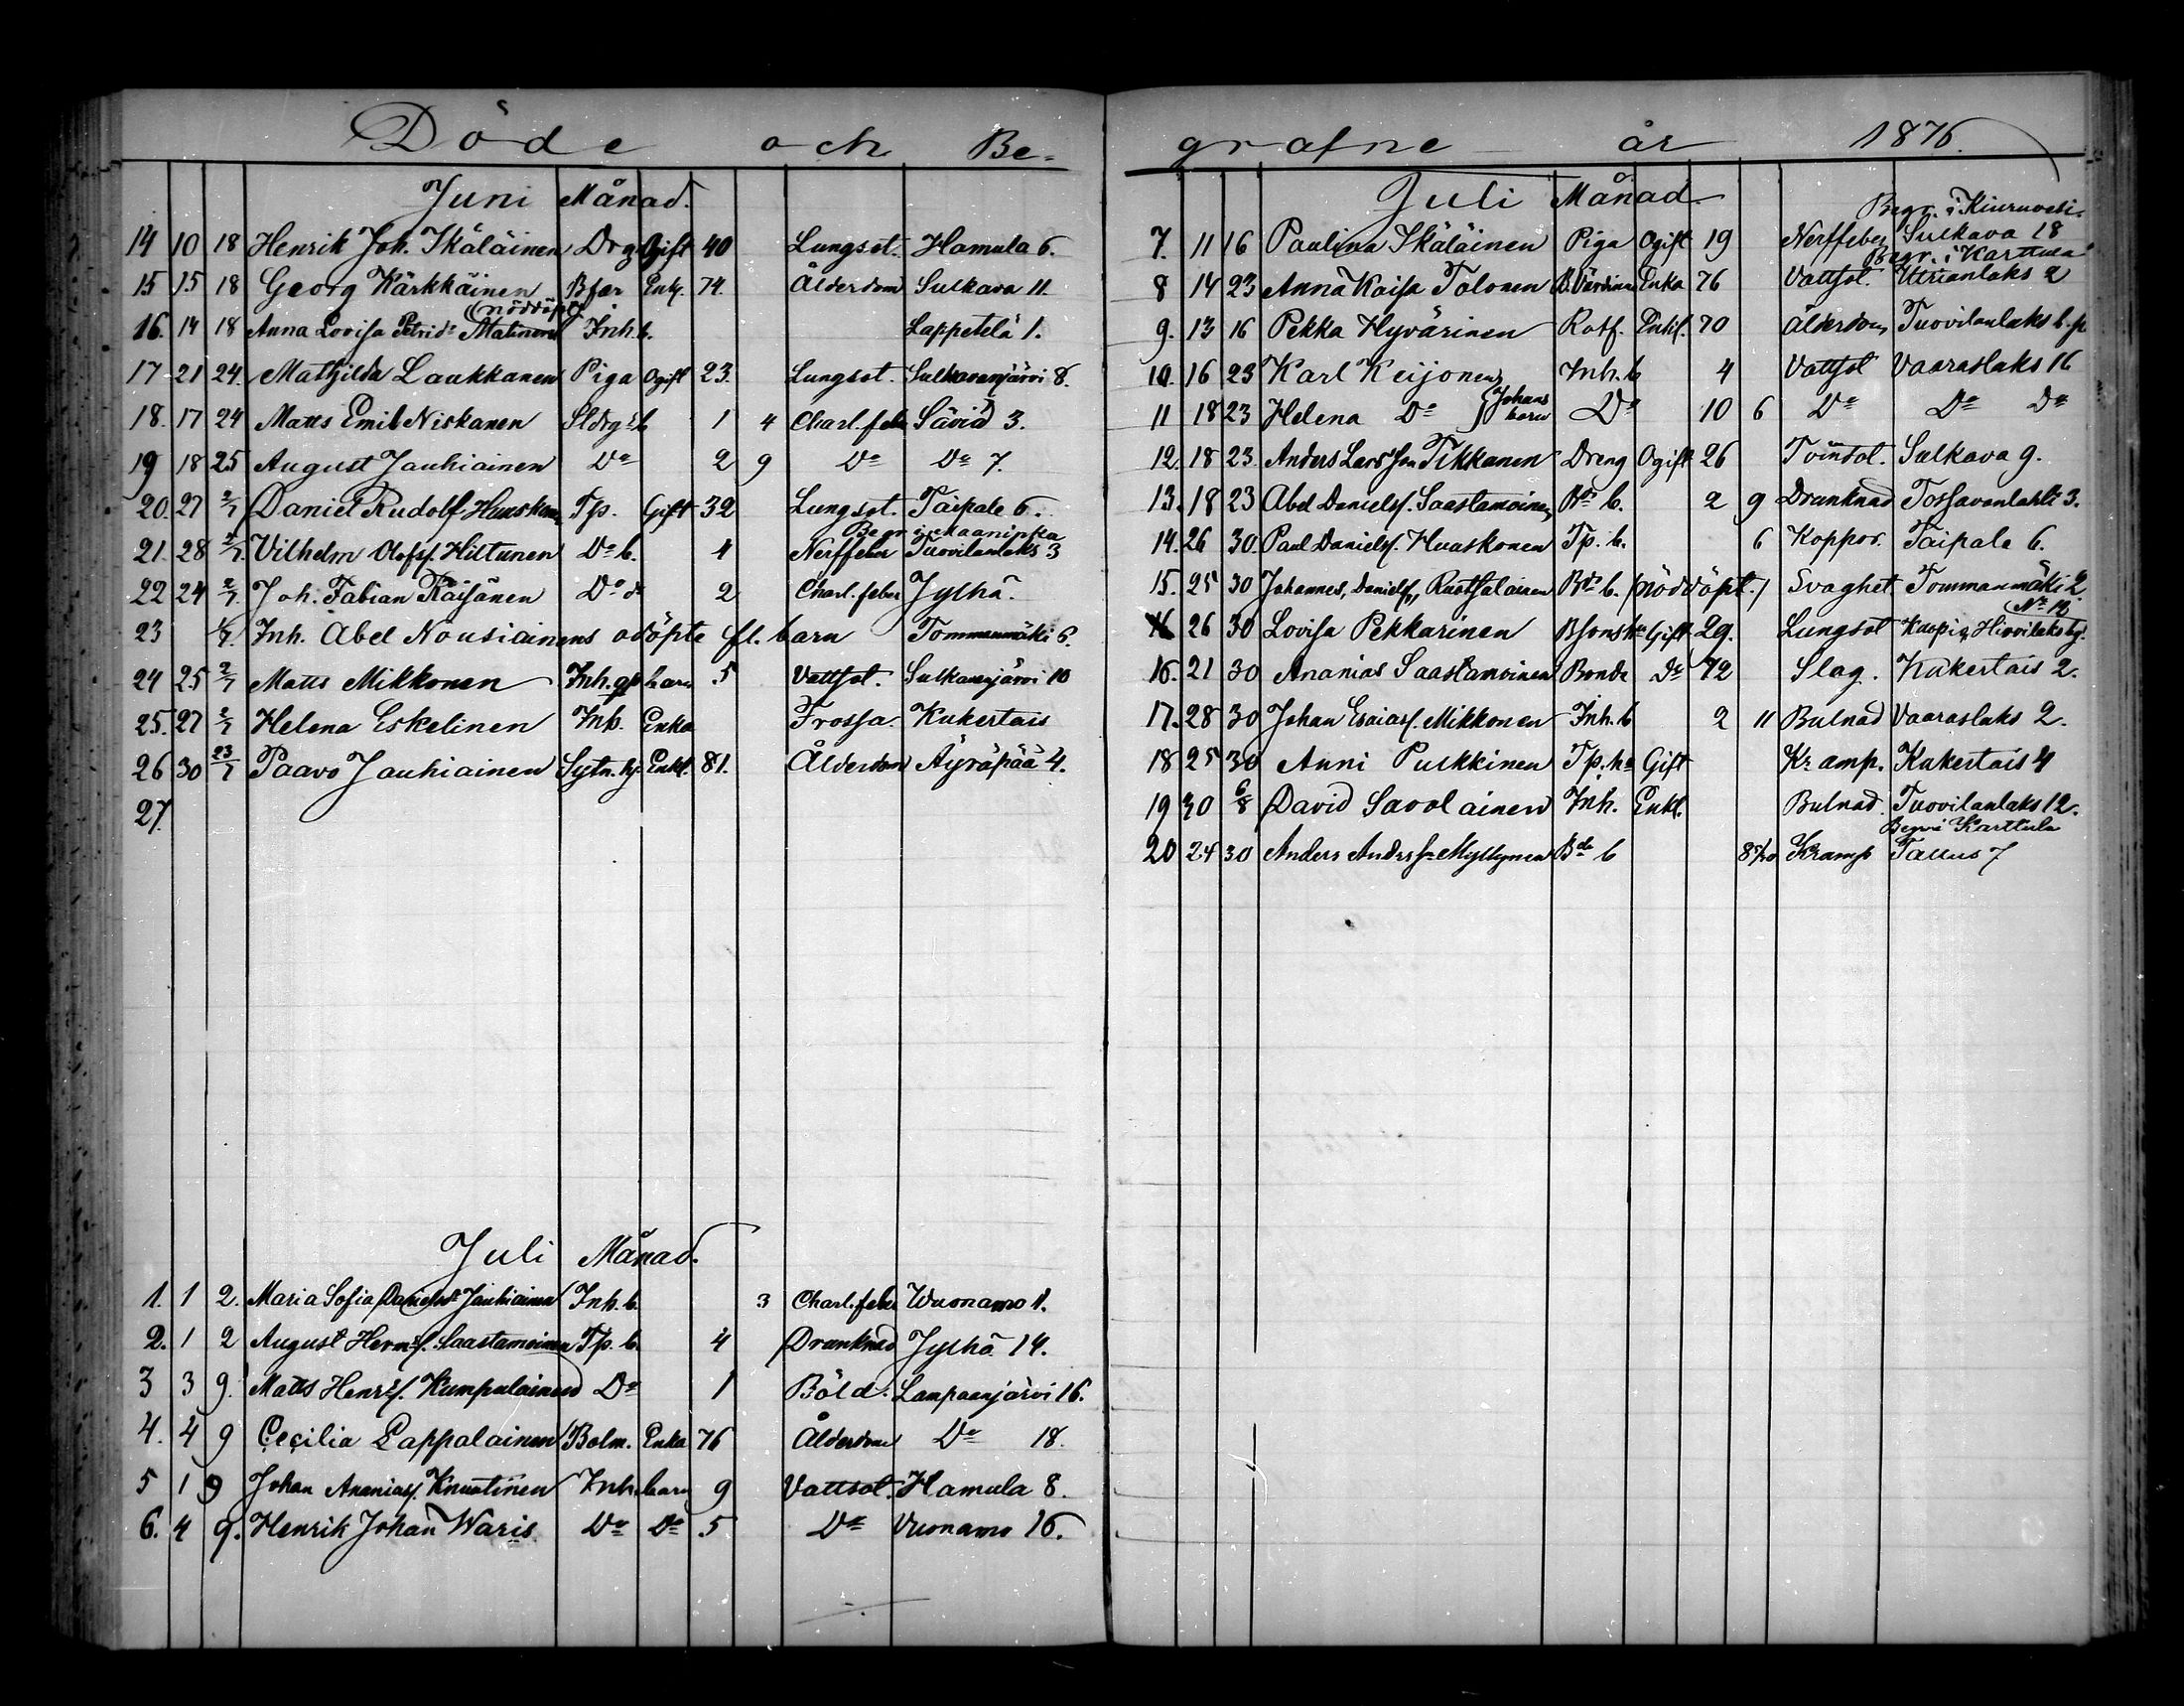 Döde och Be-
Juni Månad.
14 10 18 Henrik Joh. Ikäläinen Drg Gift 40 Lungsot. Hamula 6.
15 15 18 Georg Kärkkäinen Bfar Enkl. 74. Ålderdom Sulkava 11.
(nöddöpt)
16. 14 18 Anna Lovisa Petrid. Matinen Inh. b. Lappetelä 1.
17 21 24. Mathilda Laukkanen Piga Ogift 23. Lungsot. Sulkavanjärvi 8.
18. 17 24 Matts Emil Niskanen b 1 4 Charl. feber Säviä 3.
19 18 25 August Jauhiainen Do 2 9 Do Do 7.
20. 27 2/7 Daniel Rudolf Huuskonen Tp. Gift 32 Lungsot. Taipale 6.
Begr. i Maaninka
21. 28 2/7. Vilhelm Olofs. Hiltunen Do b. 4 Nerffeber Tuovilanlaks 3
22 24 2/7 Joh. Fabian Räisänen Do do 2 Charl. feber Jylhä.
23 Inh. Abel Nousiainens odöpte fl. barn Tommanmäki 6.
24 25 2/7 Matts Mikkonen Inh. gp barn 5 Vattsot. Sulkavanjärvi 10
25. 27 2/7 Helena Eskelinen Inh. Enka Frossa. Kukertais
26 30 23/7 Paavo Jauhiainen Sytn. hj. Enkl. 81. Ålderdom Äyräpää 4.
27.
Juli Månad.
1. 1 2. Maria Sofia Danielsdr Jauhiainen Inh. b. 3 Charl. feber Wuonamo 1.
2. 1 2 August Herms. Saastamoinen Tp. b. 4 Drunknad Jylhä 14.
3 3 9. Matts Henrs. Kumpulainen Do 1 Böld. Lampaanjärvi 16.
4. 4 9 Cecilia Lappalainen Bolm. Enka 76 Ålderdom Do 18.
5 1 9 Johan Ananias. Knuutinen Inh. barn 9 Vattsot. Hamula 8.
6. 4 9. Henrik Johan Waris Do Do 5 Do Vuonamo 16.
grafne år 1876.
Juli Månad
Begr. i Kiuruvesi.
7. 11 16 Paulina Ikäläinen Piga Ogift 19 Nerffeber Sulkava 18
Begr. i Karttula
8 14 23 Anna Kaisa Tolonen B. Värdinna Enka 76 Vattsot. Utrianlaks 2
9. 13 16 Pekka Hyvärinen Rotf. Enkl. 70 Ålderdom Tuovilanlaks b. p
10. 16 23 Karl Keijonen Inh. b 4 Vattsot Vaaraslaks 16
11 18 23 Helena Do } Johans barn Do 10 6 Do Do Do
12. 18 23 Anders Larsson Tikkanen Dreng Ogift 26 Tvinsot. Sulkava 9.
13. 18 23 Abel Daniels. Saastamoinen Bds b. 2 9 Drunknad Tossavanlahti 3.
14. 26 30. Paul Daniels. Huuskonen Tp. b. 6 Koppor. Taipale 6.
15. 25 30 Johannes, Daniels,, Ruotsalainen Bds b. (nöddöpt.) Svaghet Tommanmäki 2
No 12
26 30 Lovisa Pekkarinen Bsonshu Gift 29. Lungsot Kuopio Hirvilaks by.
16. 21 30 Ananias Saastamoinen Bonde Do 72 Slag. Kukertais 2.
17. 28 30 Johan Esaias. Mikkonen Inh. b 2 11 Bulnad Vaaraslaks 2.
18 25 30 Anni Pulkkinen Tp. ha Gift Kramp. Kukertais 4
19 30 6/8 David Savolainen Inh. Enkl. Bulnad. Tuovilanlaks 12.
Begr. i Karttula
20 24 30 Anders Anders. Myllynen Bde b Kramp Tallus 7